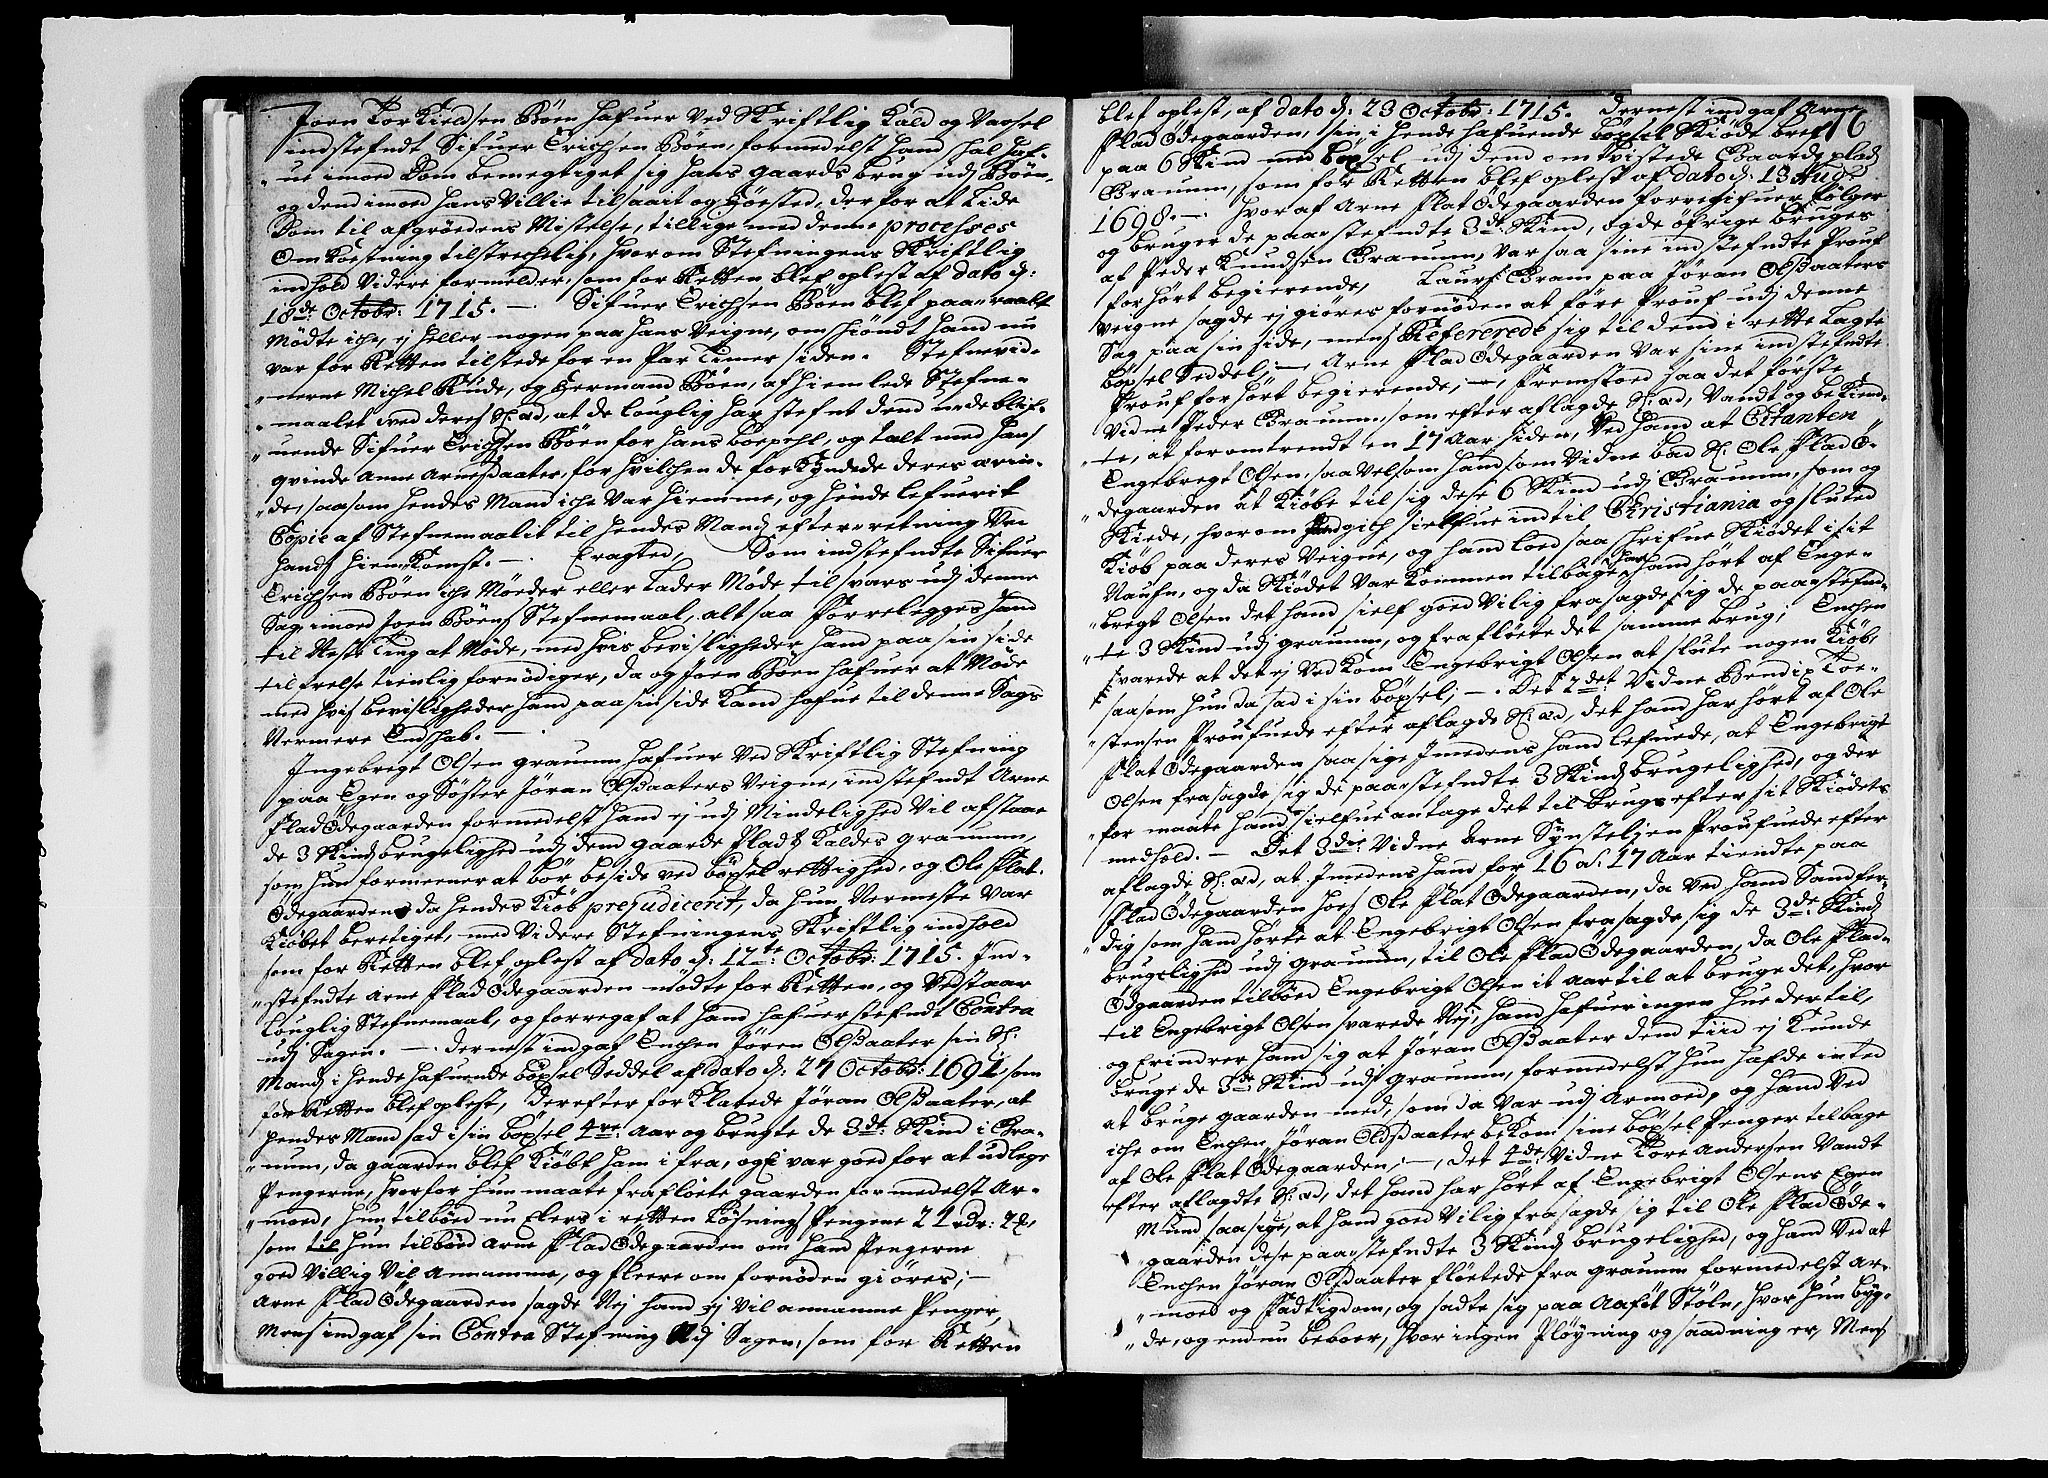 Joen Torkieldsen Böen hafuer ved Skriftlig Kald og Varsel
indstefndt Sifuer Erichsen Böen, formedelst hand skal haf-
"ue imoed Dom bemegtiget sig hans gaards brug udj Böen,
og dend imoed hans Villie tilsaait og Höested, der for at Lide
Dom til afgrödens Mistelse, tillige med denne processes
Omkostning tilstrechelig, hvorom Stefningens Skriftlig
indhold Videre formelder, som for Retten blef oplest af dato d:
18de: Octobr: 1715. —. Sifuer Erichsen Böen blef paaraabt
Mödte iche, ej heller nogen paa hans Veigne, omskiöndt hand nu
var for Retten tilstede for en Par Timer siden. Stefnevid-
"nerne Michel Rude, og Hermand Böen, afhiemlede Stefne-
"maalet ved deres Ed, at de louglig har stefnt dend udeblif-
"uende Sifuer Erichsen Böen for hans boepehl, og talt med hans
qvinde Anne Arnesdaater, for hvilchen de forkyndede deres ærin-
"de, saasom hendes Mand iche var hiemme, og hende lefuerit
Copie af Stefnemaalit til hendes Mands efterretning ved
hands hiemkomst. —. Eragted, Som indstefndte Sifuer
Erichsen Böen iche Möeder eller Lader Möde til svars udj denne
Sag, imoed Joen Böens Stefnemaal, altsaa Forrelegges hand
til Neste Ting at Möde, med hvis bevisligheder hand paa sin side
til frelse tienlig fornödiger, da og Joen Böen hafuer at Möde
med hvis bevisligheder hand paa sin side kand hafue til denne Sags
Nermere Endskab. —.
Ingebregt Olsen graumm hafuer ved Skriftlig Stefning
paa Egen og Söster Jöran Olsdaaters Veigne, indstefndt Arne
Flad Ödegaarden formedelst hand ej udj Mindelighed Vil afstaae
de 3 Skinds brugelighed udj dend gaarde Plads kaldes graumm,
som hun formeener at bör beside ved böxel rettighed, og Ole Flat-
Ödegaarden da hendes kiöb prejudicerit, da hun Nermeste var
Kiöbet beretiget, med videre Stefningens Skriftlig indhold
som for Retten blef oplest af dato d: 12te: Octobr: 1715. Ind-
"stefndte Arne Flad Ödegaarden mödte for Retten, og Vedstaar
Louglig Stefnemaal, og forregaf at hand hafuer stefndt Contra
udj Sagen. —. dernest indgaf Enchen Jören Olsdaater sin S:
Mands i hende hafuende böxel Seddel af dato d: 27 Octobr: 1691, som
for Retten blef oplest, Derefter forklarede Jöran Olsdaater, at
hendes Mand sad i sin böxel 4re: Aar og brugte de 3de: Skind i Gra-
"numm, da gaarden blef kiöbt ham i fra, og ej var goed for at udlege
Pengerne, hvorfor hun maate fraflöete gaarden formedelst Ar-
"moed, hun tilböed nu Elers i retten Lösnings Pengene 21 rdr: 2
som til hun tilböed Arne Flad Ödegaarden om hand Pengerne
goed villig vil annamme, og fleere om fornöden giöres; —
Arne Flad Ödegaarden sagde Nej hand ej vil annamme Penger,
Mens indgaf sin Contra Stefning udj Sagen, som for Retten
blef oplest, af dato d: 23 Octobr: 1715. Dernest indgaf Arne
16
Flad Ödegaarden, sin i hende hafuende böxsel Skiödt bref
paa 6 Skind med böxsel, udj dend omtvistede Gaards plads
Graumm, som for Retten blef oplest af dato d: 13 Aug:
1698. —. Hvoraf Arne Flat Ödegaarden forregifuer fölger
og bruger de paastefndte 3de: Skind, og de öfrige bruges
af Peder Knudsen Graumm, var saa sine indstefndte Prouf
forhört begierende, Laurs Gram paa Jöran Olsdaaters
Veigne sagde ej giöres fornöden at före Prouf udj denne
Sag paa sin side, mens Refererede sig til dend i rette Lagte
böxsel Seddel; —, Arne Flad Ödegaarden var sine indstefndte
Prouf forhört begierende; —, Fremstoed saa det förste
Vidne Peder Graumm, som efter aflagde Ed, Vandt og bekiend-
"te, at for omtrendt en 17 Aar siden, ved hand at Citanten
Engebregt Olsen, saavelsom hand som Vidne bad Sl: Ole Flad Ö-
"degaarden at kiöbe til sig dese 6 Skind udj Graumm, som og
Skiede, hvorom hand gich sielfue ind til Christiania og sluted
Kiöb paa deres Veigne, og hand loed saa schrifue Skiödet i sit
Naufn, og da Skiödet var kommen tilbage, har hand hört af Enge-
"bregt Olsen det hand sielf goed vilig frasagde sig de paastefnd-
"te 3 Skind udj graumm, og fraflöete det samme brug; Enchen
svarede at det ej vedkom Engebrigt Olsen at slute nogen kiöb,
saasom hun da sad i sin böxsel; —. Det 2det: Vidne Bendix Toe-
"stensen Proufuede efter aflagde Ed, det hand har hört af Ole
Flat Ödegaarden saa sige Imedens hand lefuede, at Engebrigt
Olsen frasagde sig de paastefndte 3 Skinds brugelighed, og der
"for maate hand sielfue antage det til brugs efter sit Skiödets
medhold. — Det 3die: Vidne Arne Synsteljen Proufuede efter
aflagde Ed, at Imedens hand for 16 a 17 Aar tiendte paa
Flad Ödegaarden hoes Ole Flat Ödegaarden, da ved hand Sandfer-
"dig som hand hörte at Engebrigt Olsen frasagde sig de 3de: Skinds
brugelighed udj graumm, til Ole Flad Ödegaarden, da Ole Flad-
Ödgaarden tilböed Engebrigt Olsen it aar til at bruge det, hvor
til Engebrigt Olsen svarede Nej, hand hafuer ingen hue dertil,
og Erindrer hand sig at Jöran Olsdaater dend tiid ej kunde
bruge de 3de Skind udj Graumm, formedelst hun hafde inted
at bruge gaarden med, som da var udj Armoed, og hand ved
iche om Enchen Jöran Olsdaater bekom sine böxsel Penger tilbage
af Ole Flat Ödegaarden; —, Det 4de: Vidne Tore Andersen Vandt
efter aflagdte Ed, det hand har hört af Engebrigt Olsens Egen
Mund saa sige, at hand goed vilig frasagde sig til Ole Flad Öde-
"gaarden dese paastefndte 3 Skinds brugelighed, og hand ved at
Enchen Jöran Olsdaater flöetede fra graumm formedelst Ar-
"moed og Fadtigdom, og sadte sig paa Aafit Stöln, hvor hun byg-
"de, og endnu beboer, hvor ingen Plöyning og saadning er, Mens